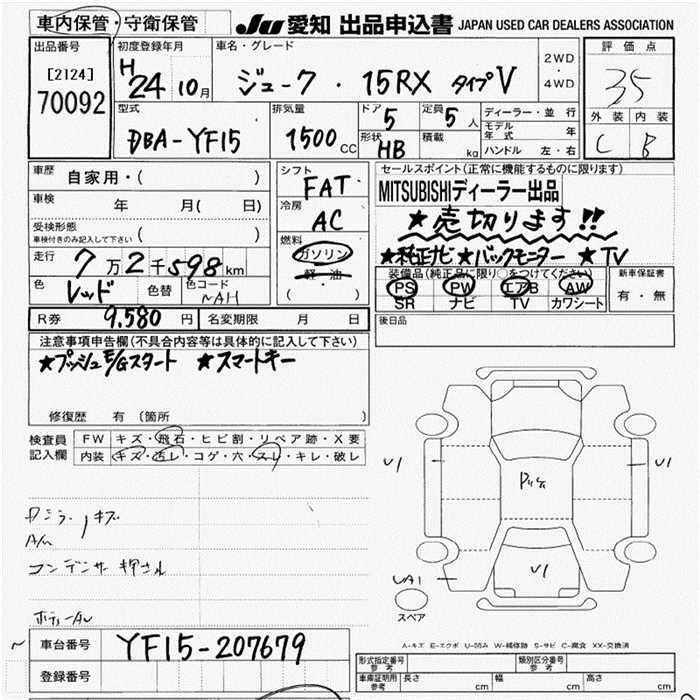 車内保管・守衛保管 JU 愛知 出品申込書 JAPAN USED CAR DEALERS ASSOCIATION
出品番号 初度登録年月 車名・グレード 2WD・4WD 評価点
[2124] 70092 H24 10月 ジューク・15RX タイプV 35
型式 排気量 ドア 5 定員 5人 ディーラー・並行 外装 内装
DBA-YF15 1500CC 形状 HB 積載 kg モデル年式 年 C B
ハンドル 左・右
車歴 自家用・( ) シフト FAT セールスポイント(正常に機能するものに限ります)
車検 年 月( 日) 冷房 AC MITSUBISHIディーラー出品
受検形態 車検付きのみ記入して下さい ( ) ★売切ります!!
走行 7万2千598km 燃料 ガソリン・軽油 ( ) ★純正ナビ ★バックモニター ★TV
色 レッド 色替 色コード NAH 装備品(純正品に限り○をつけてください) 新車保証書
PS PW エアB AW 有・無
SR ナビ TV カワシート
R券 9,580円 名変期限 月 日 後日品
注意事項申告欄(不具合内容等は具体的に記入して下さい)
★プッシュE/Gスタート ★スマートキー
修復歴 有(箇所 )
検査員記入欄 FW キズ・飛石・ヒビ割・リペア跡・X要
内装 キズ・汚レ・コゲ・穴・スレ・キレ・破レ
U1 U1
キズ
コンデンサー押され
U1
UA1
スペア
A-キズ E-エクボ U-凹み W-補修跡 S-サビ C-腐食 XX-交換済
車台番号 YF15-207679
登録番号
形式指定番号 参考 類別区分番号 参考
車庫証明用 参考 長さ cm 幅 cm 高さ cm